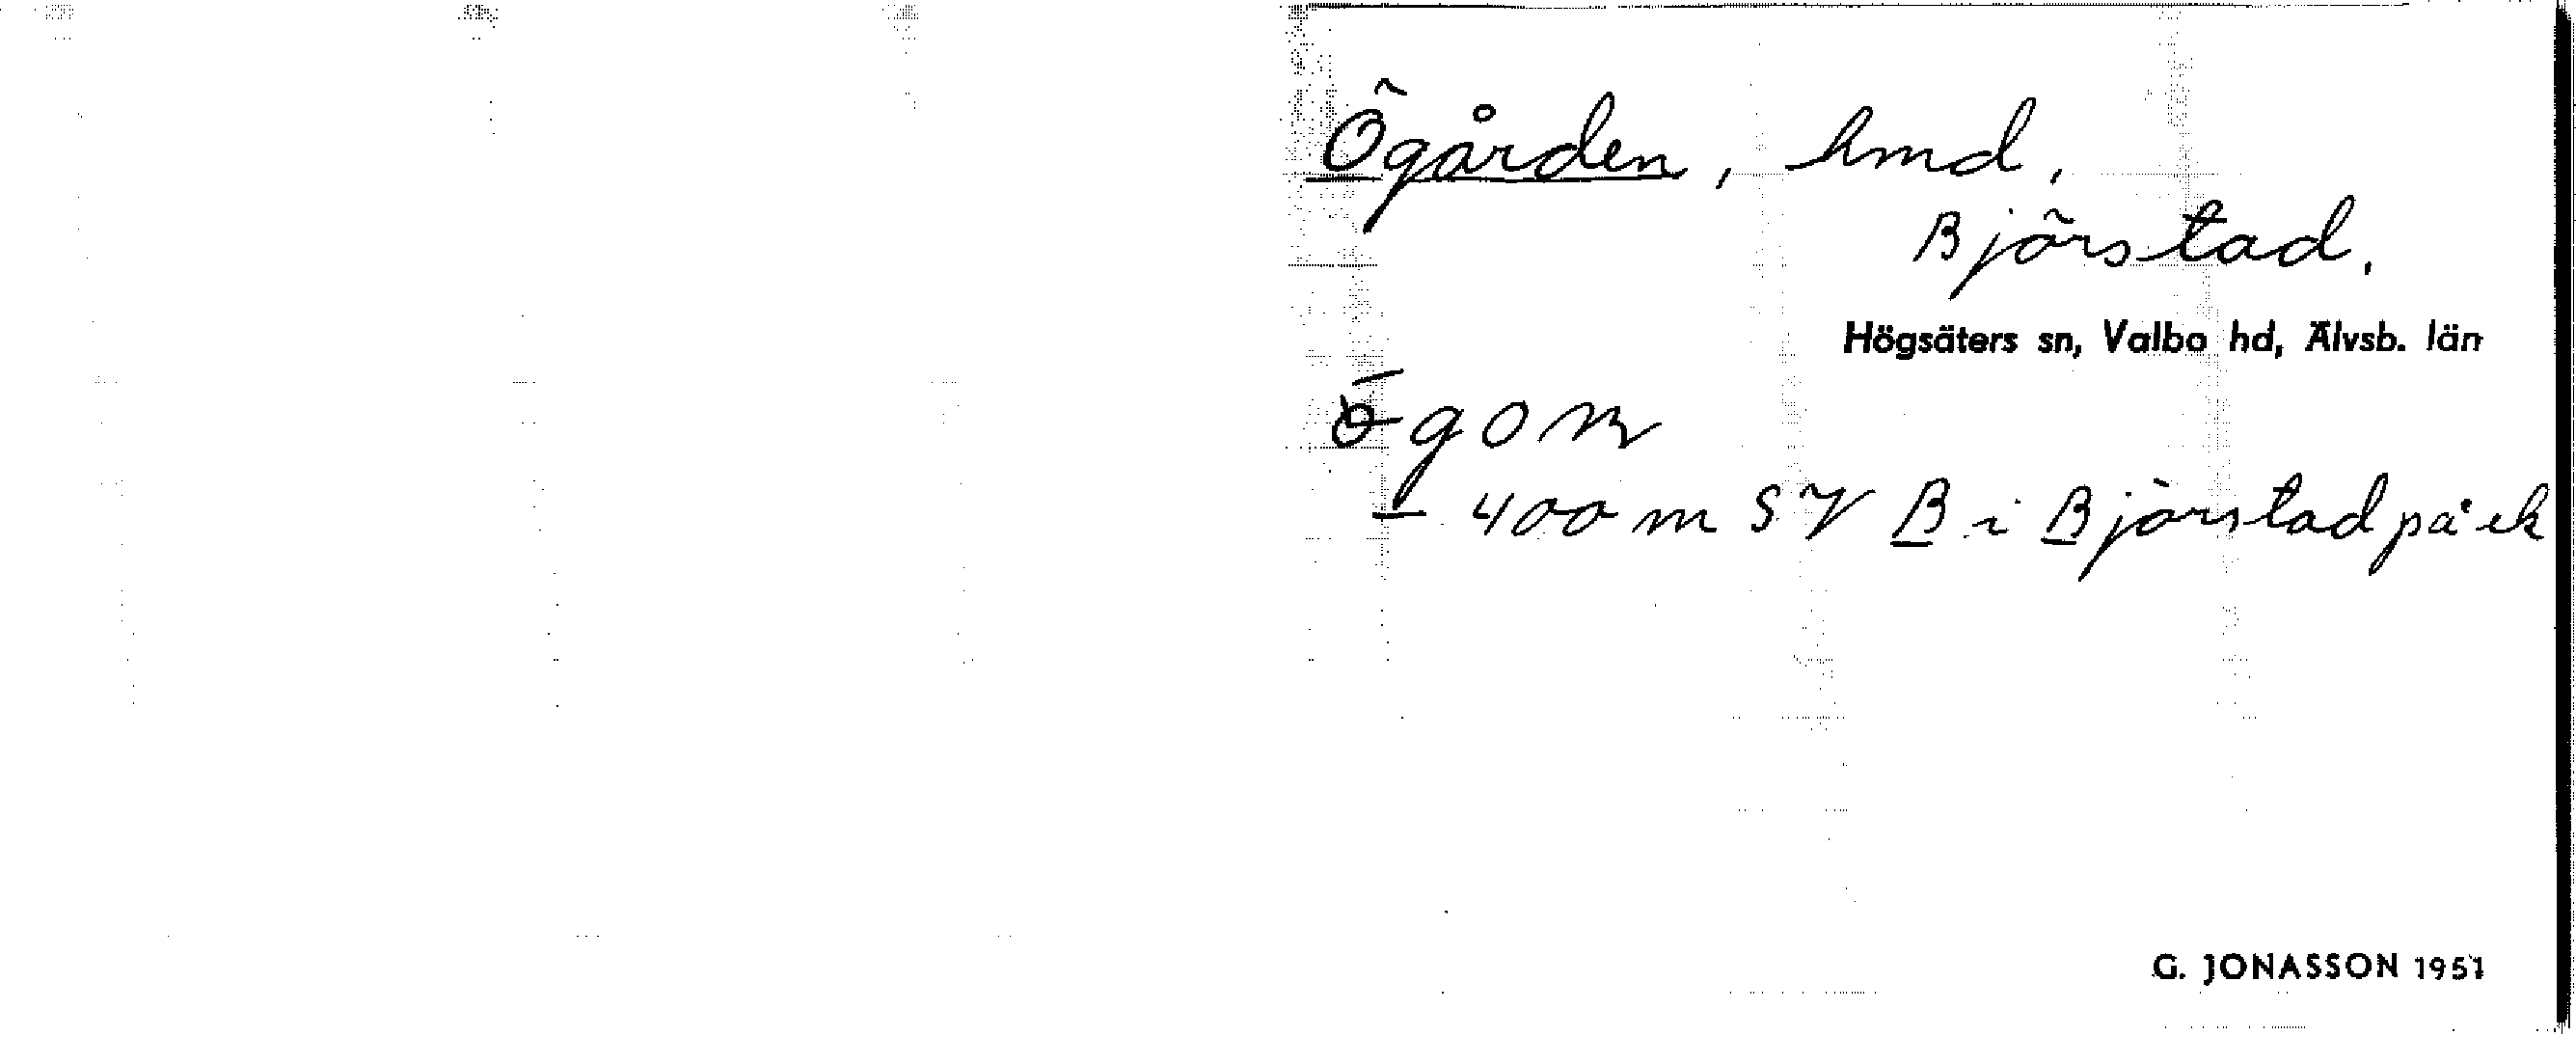 Ögården, hmd,
Björstad.
Högsäters sn, Valbo hd, Älvsb. län
400 m SV B i Björstad på ek
G. JONASSON 1951